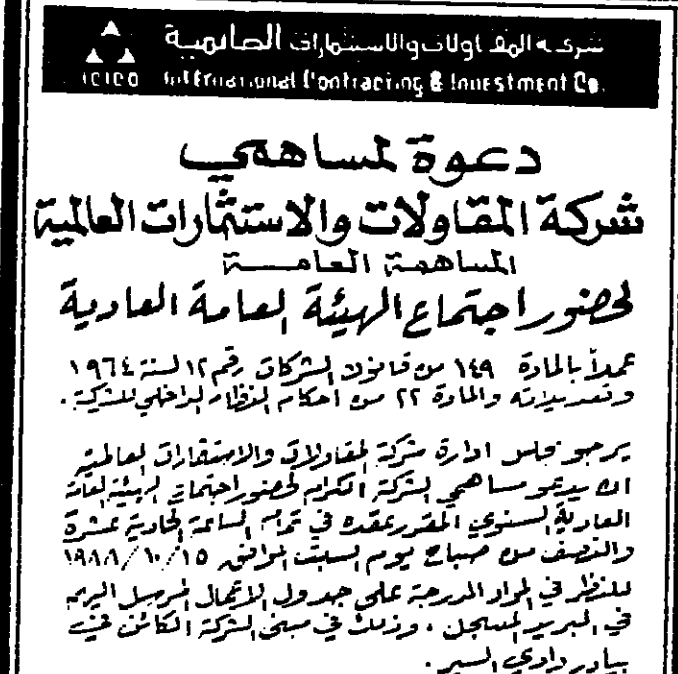 شركة المقاولات والاستثمارات العالمية
ICICO International Contracting & Investment Co.
دعوة لمساهمي
شركة المقاولات والاستثمارات العالمية
المساهمة العامـــة
لحضور اجتماع الهيئة العامة العادية
عملاً بالمادة ١٤٩ من قانون الشركات رقم ١٢ لسنة ١٩٦٤
وتعديلاته والمادة ٢٢ من احكام النظام الداخلي للشركة .
يرجو مجلس ادارة شركة المقاولات والاستثمارات العالمية
ان يدعو مساهمي الشركة الكرام لحضور اجتماع الهيئة العامة
العادية السنوي المقرر عقده في تمام الساعة الحادية عشرة
والنصف من صباح يوم السبت الموافق ١٩٨٨/١٠/١٥
للنظر في المواد المدرجة على جدول الاعمال المرسل اليهم
في البريد المسجل ، وذلك في مبنى الشركة الكائن في
بيادر وادي السير .